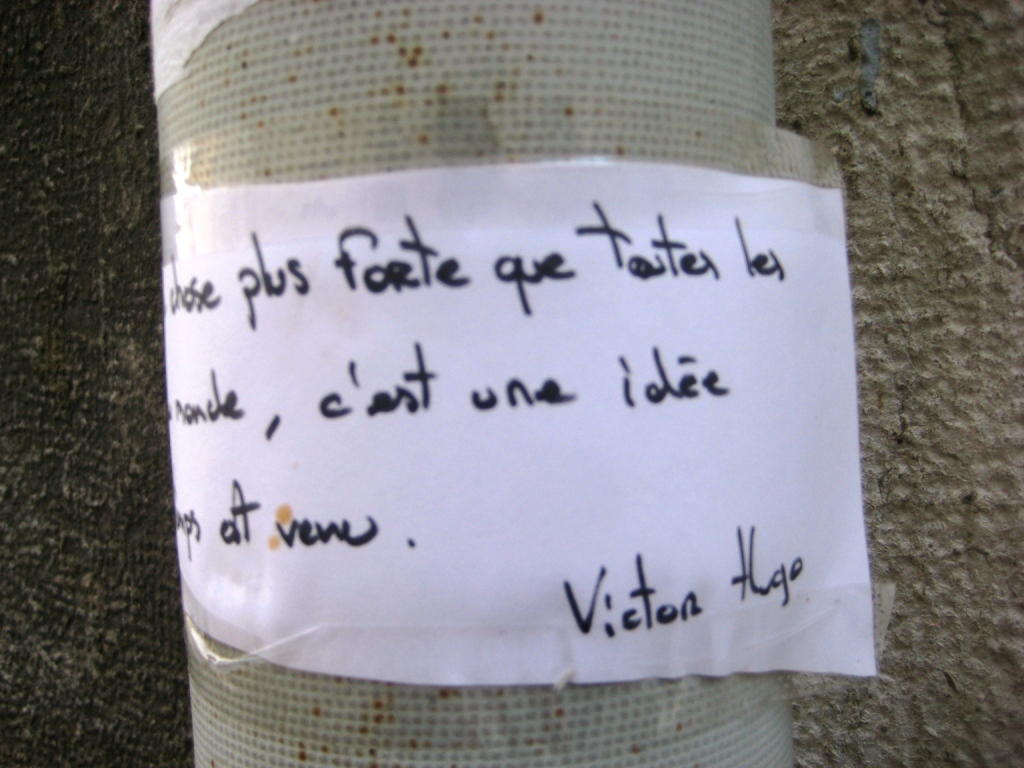 chose plus forte que toutes les
monde, c'est une idée
est venu.
Victor Hugo